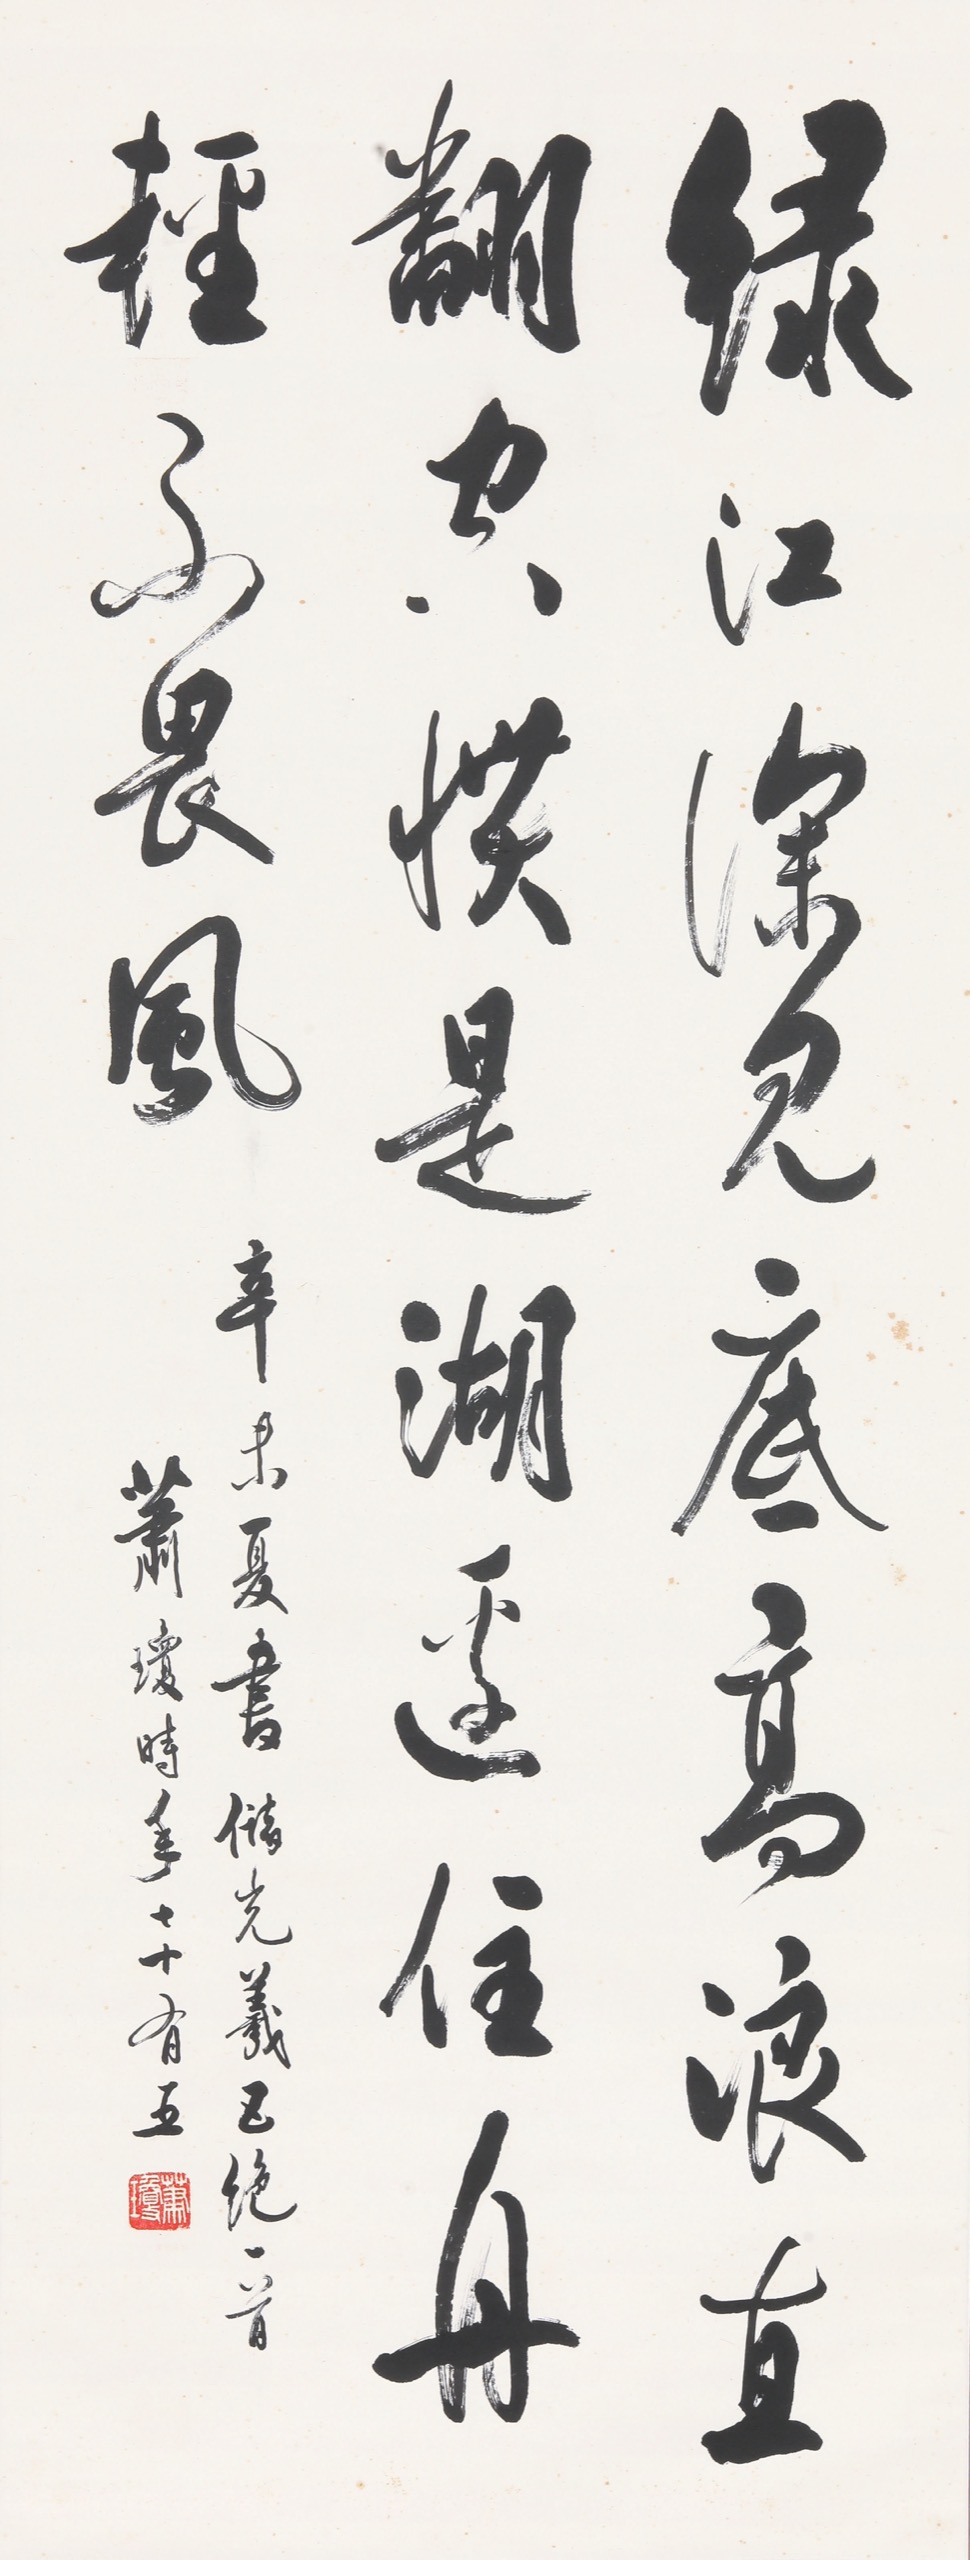 綠江深見底高浪直
翻空慣是湖邊住舟
輕不畏風
辛未夏書儲光羲五絕一首
蕭瓊時年七十有五
蕭瓊